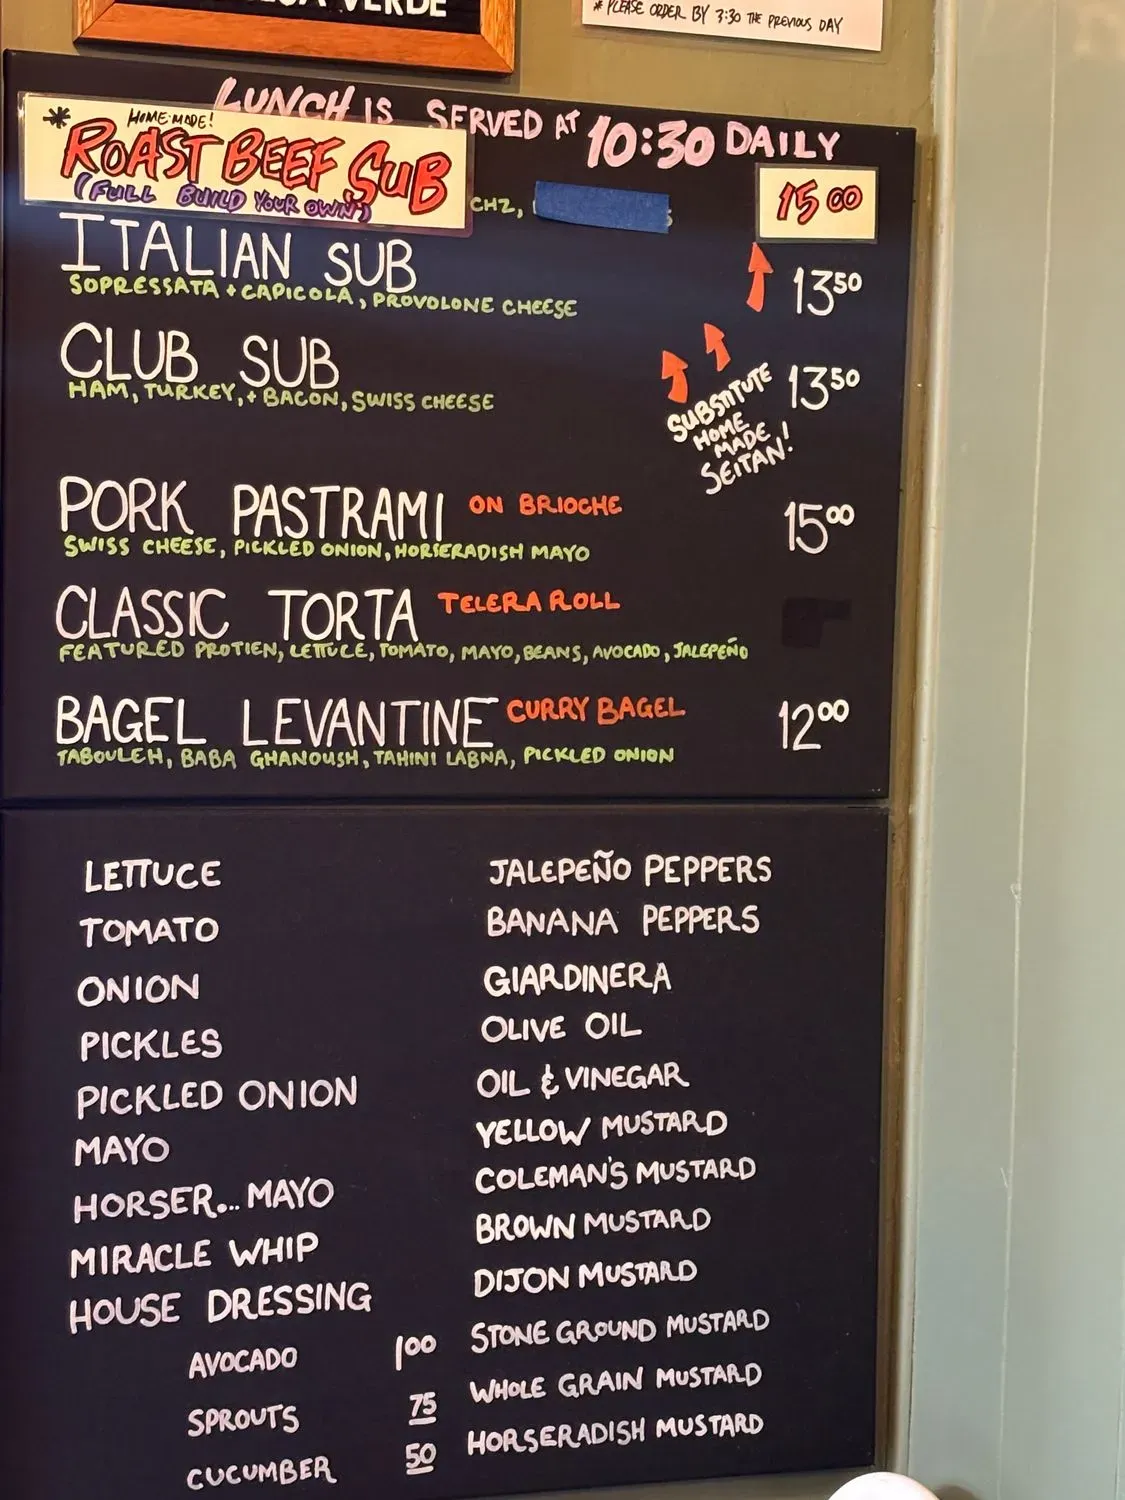 VERDE
* PLEASE ORDER BY 3:30 THE PREVIOUS DAY
LUNCH IS SERVED AT 10:30 DAILY
* HOME MADE!
ROAST BEEF SUB 15 00
(FULL BUILD YOUR OWN)
CHZ,
ITALIAN SUB 13 50
SOPRESSATA + CAPICOLA, PROVOLONE CHEESE
CLUB SUB 13 50
HAM, TURKEY, + BACON, SWISS CHEESE
SUBSTITUTE
HOME
MADE
SEITAN!
PORK PASTRAMI ON BRIOCHE 15 00
SWISS CHEESE, PICKLED ONION, HORSERADISH MAYO
CLASSIC TORTA TELERA ROLL
FEATURED PROTIEN, LETTUCE, TOMATO, MAYO, BEANS, AVOCADO, JALEPEÑO
BAGEL LEVANTINE CURRY BAGEL 12 00
TABOULEH, BABA GHANOUSH, TAHINI LABNA, PICKLED ONION
LETTUCE
TOMATO
ONION
PICKLES
PICKLED ONION
MAYO
HORSER... MAYO
MIRACLE WHIP
HOUSE DRESSING
AVOCADO 1 00
SPROUTS 75
CUCUMBER 50
JALEPEÑO PEPPERS
BANANA PEPPERS
GIARDINERA
OLIVE OIL
OIL & VINEGAR
YELLOW MUSTARD
COLEMAN'S MUSTARD
BROWN MUSTARD
DIJON MUSTARD
STONE GROUND MUSTARD
WHOLE GRAIN MUSTARD
HORSERADISH MUSTARD